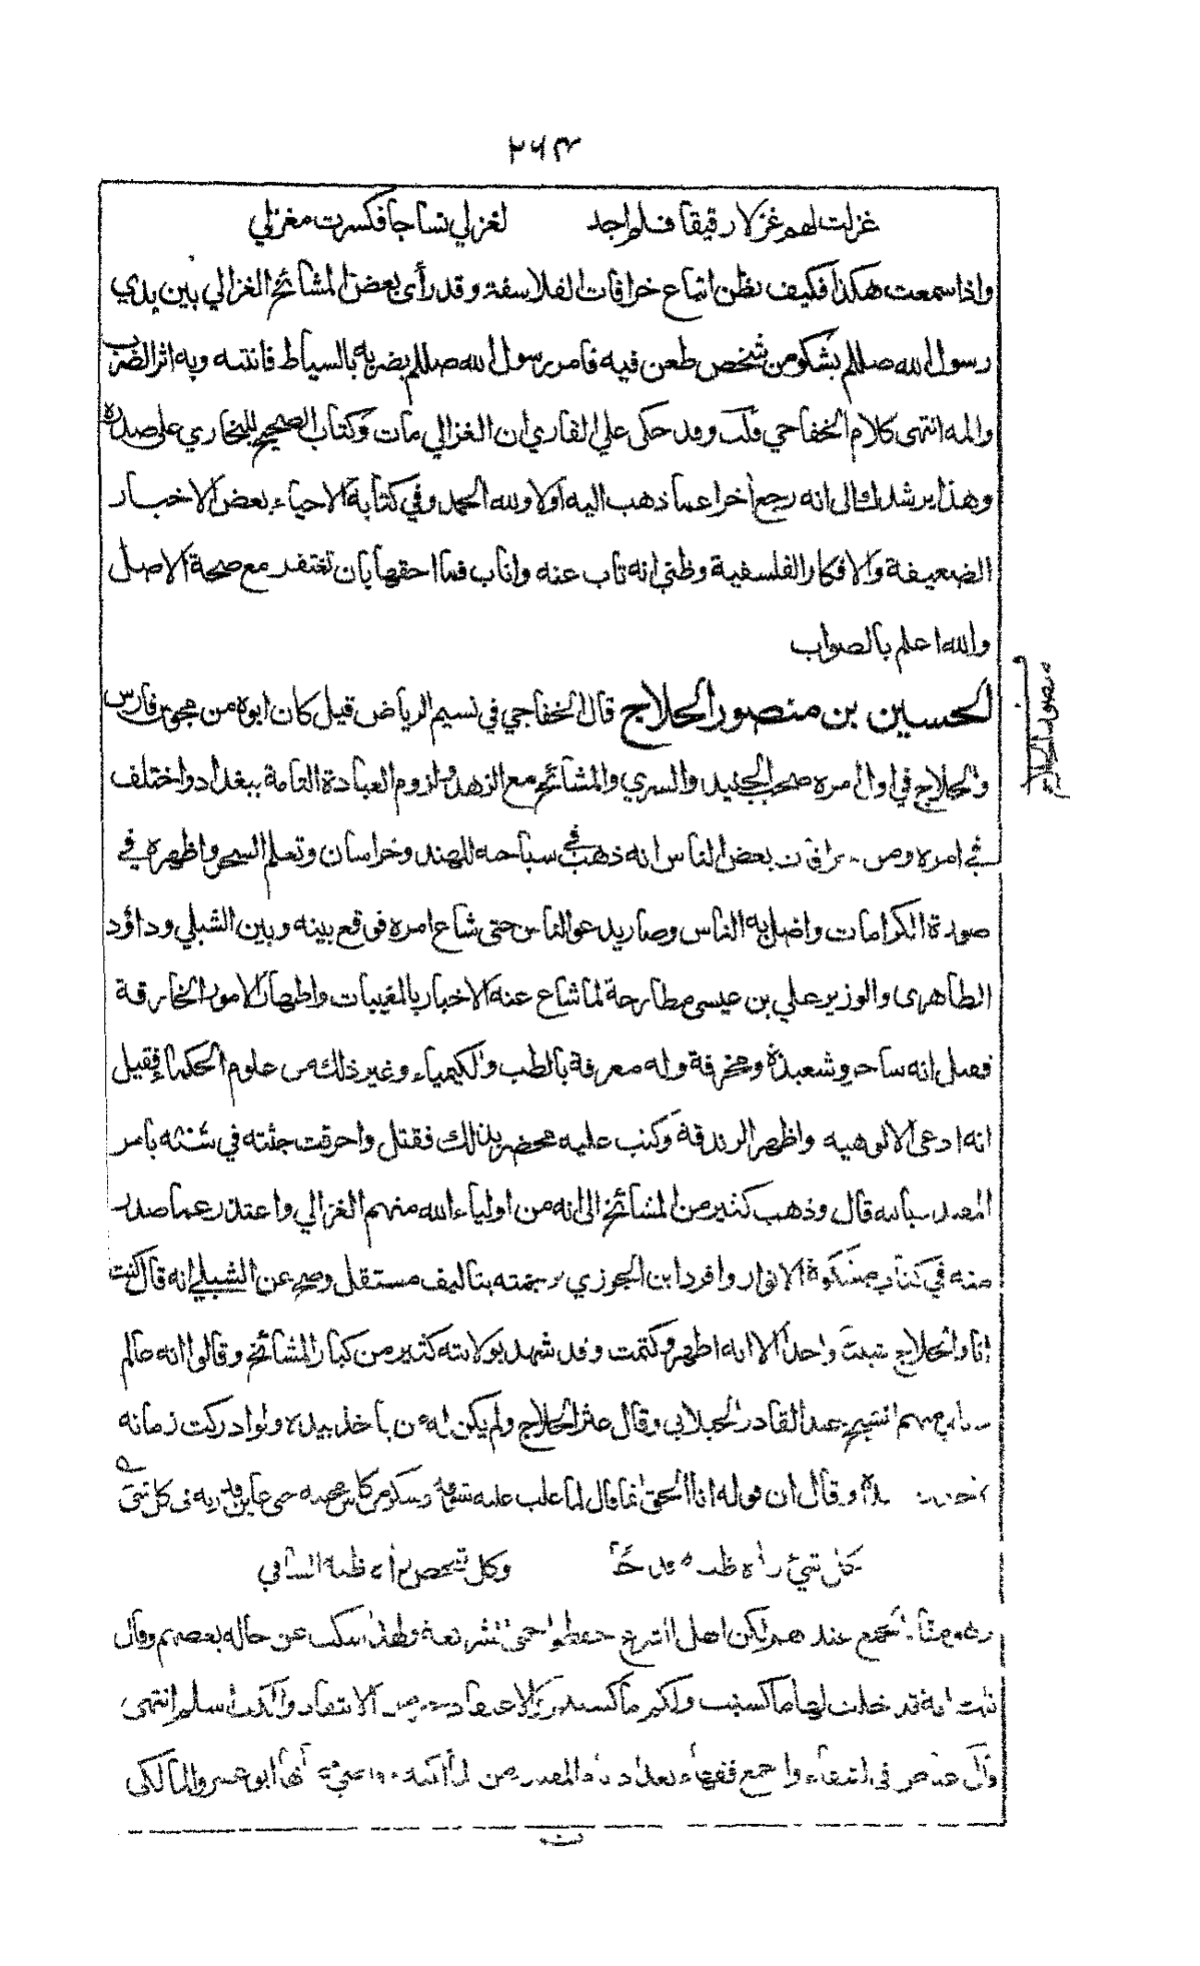 ٢٦٣
غزلت لهم غزلا رقيقا فلم اجد لغزلي نساجا فكسرت مغزلي
واذا سمعت هكذا فكيف يظن اتباع خرافات الفلاسفة وقد رأى بعض المشائخ الغزالي بين يدي
رسول الله صللم يشكو من شخص طعن فيه فامر رسول الله صللم بضربه بالسياط فانتبه وبه اثر الضرب
والمه انتهى كلام الخفاجي قلت وقد حكى علي القاري ان الغزالي مات وكتاب الصحيح للبخاري على صدره
وهذا يرشدك الى انه رجع اخرا عما ذهب اليه اولا ولله الحمد وفي كتابه الاحياء بعض الاخبار
الضعيفة والافكار الفلسفية وظني انه تاب عنه واناب فما احقها بان تغتفر مع صحة الاصل
والله اعلم بالصواب
الحسين بن منصور الحلاج قال الخفاجي في نسيم الرياض قيل كان ابوه من مجوس فارس
والحلاج في اوائل امره صحب الجنيد والسري والمشائخ مع الزهد ولزوم العبادة التامة ببغداد واختلف
في امره بعض الناس انه ذهب في سياحته للهند وخراسان وتعلم السحر واظهره في
صورة الكرامات واضل به الناس وصار يدعو الناس حتى شاع امره فوقع بينه وبين الشبلي وداؤد
الطاهرى والوزير علي بن عيسى مطارحة لما شاع عنه الاخبار بالمغيبات واظهار الامور الخارقة
فقيل انه ساحر وشعبذة ومخرقة وله معرفة بالطب والكيمياء وغير ذلك من علوم الحكماء فقيل
انه ادعى الالوهيه واظهر الزندقة وكتب عليه محضر بذلك فقتل واحرقت جثته في سنة بامر
المقتدر بالله قال وذهب كثير من المشائخ الى انه من اولياء الله منهم الغزالي واعتذر عما صدر
منه في كتاب مشكوة الانوار وافرد ابن الجوزي ترجمته بتاليف مستقل وصح عن الشبلي انه قال كنت
انا والحلاج شيئا واحدا الا انه اظهر وكتمت وقد شهد بولايته كثير من كبار المشائخ وقالوا انه عالم
رباني منهم الشيخ عبد القادر الجيلاني وقال عثر الحلاج ولم يكن له من ياخذ بيده ولو ادركت زمانه
وقال ان قوله انا الحق انما قال لما غلب عليه شوقه وسكر من كاس حتى عاين ربه فى كل شئ
كل شئ راه ظنه قدحا وكل شخص راه ظنه الساقي
عندهم لكن اهل الشرع حفظوا حمى الشريعة ولهذا سكت عن حاله بعضهم وقال
تلك امة قد خلت لها ما كسبت ولكم ما كسبتم والاعتقاد الانتقاد والسكوت اسلم انتهى
وقال فى الشفاء واجمع فقهاء بغداد ايام المقتدر من المالكية ابو عمرو المالكى
منصور الحلاج